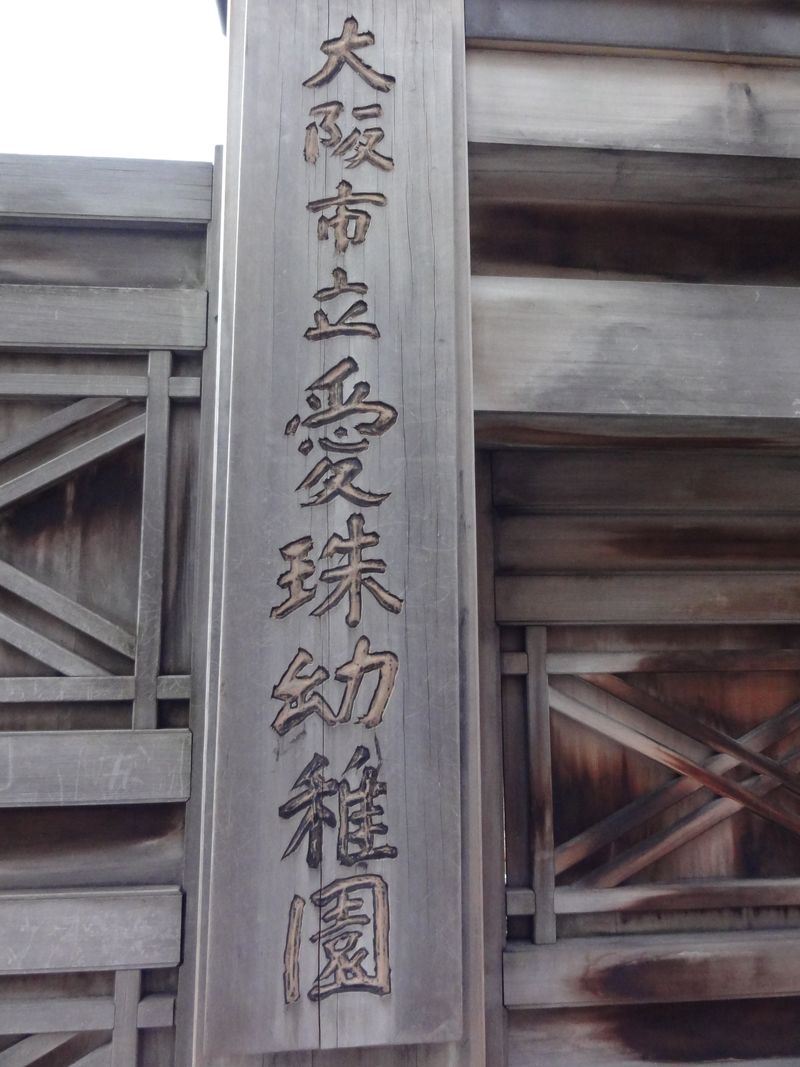 大阪市立愛珠幼稚園